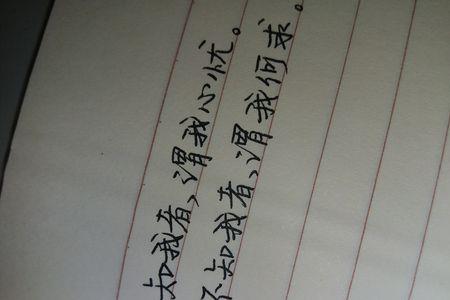 知我者，谓我心忧。
不知我者，谓我何求。